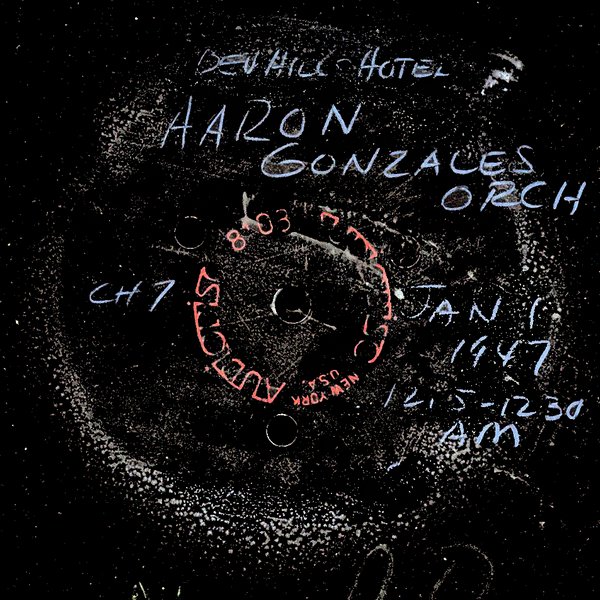 HOTEL
AARON
GONZALES
ORCH
CH 7
JAN 1
1947
1215-1230
AM
AUDIODISC
NEW YORK
U.S.A.